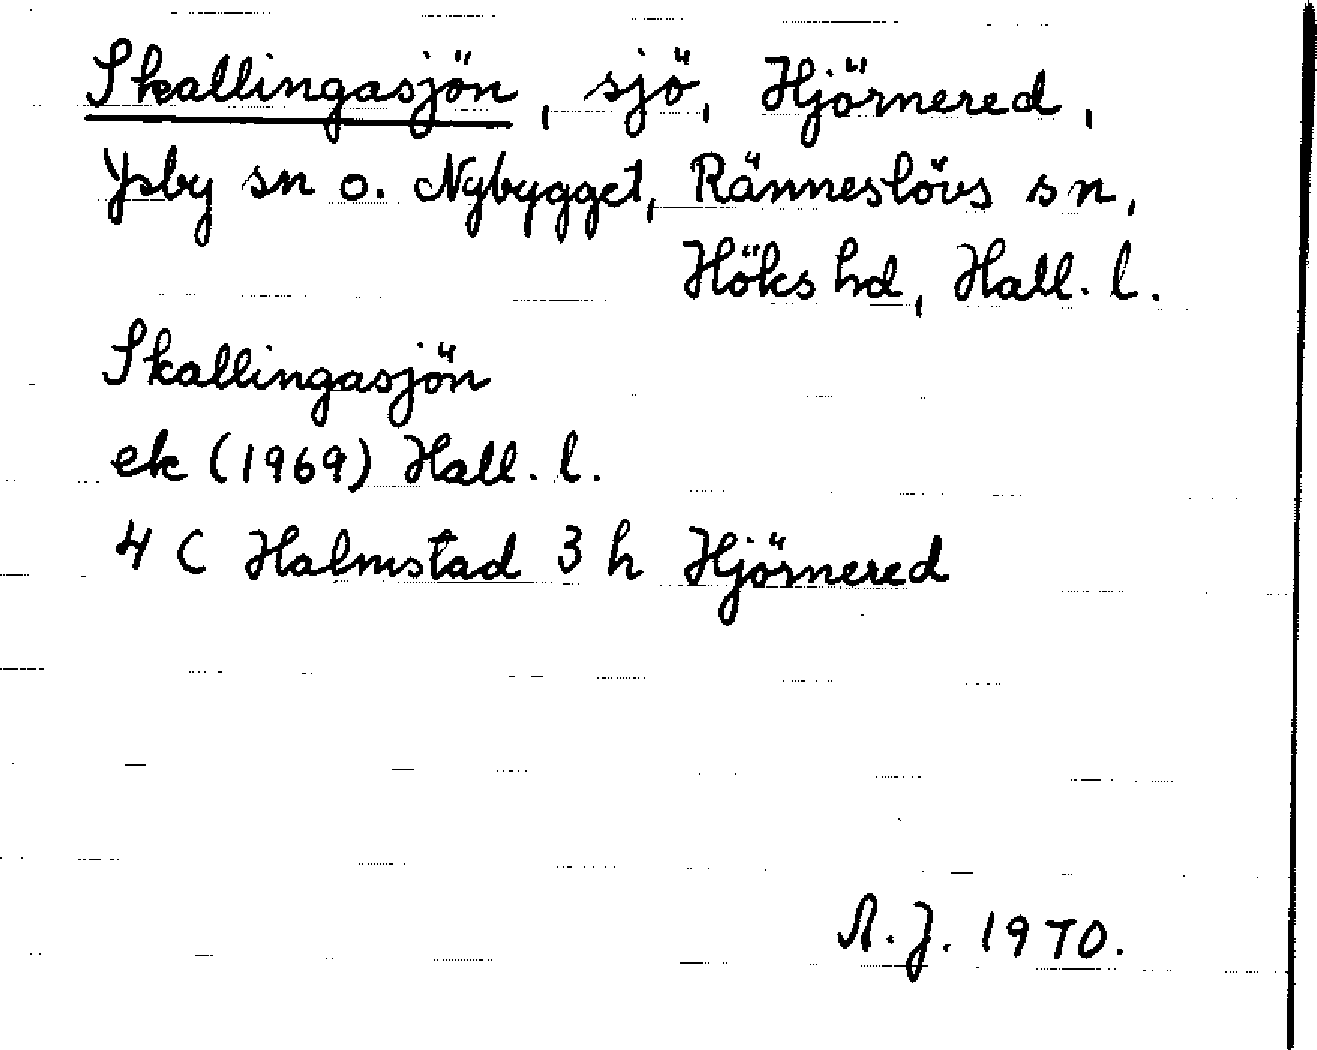 Skallingasjön, sjö, Hjörnered,
Ysby sn o. Nybygget, Ränneslövs sn,
Höks hd, Hall. l.
Skallingasjön
ek (1969) Hall. l.
4 C Halmstad 3 h Hjörnered
A.J. 1970.